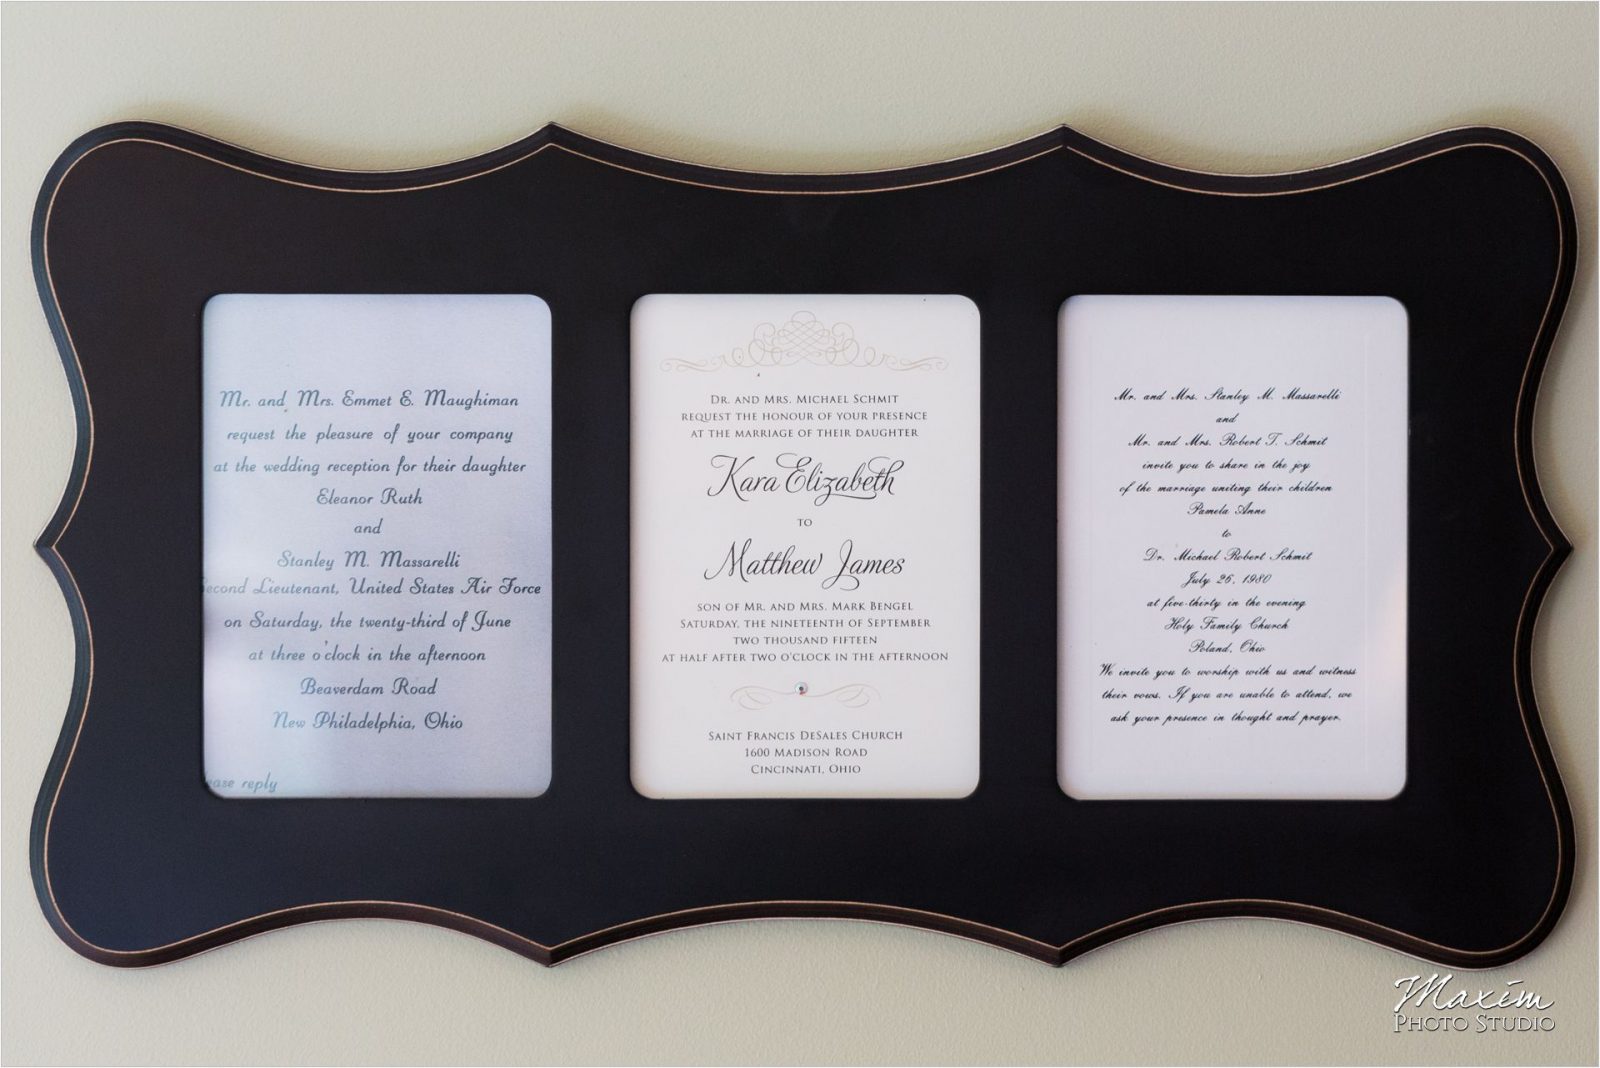 Mr. and Mrs. Emmet E. Maughiman
request the pleasure of your company
at the wedding reception for their daughter
Eleanor Ruth
and
Stanley M. Massarelli
econd Lieutenant, United States Air Force
on Saturday, the twenty-third of June
at three o'clock in the afternoon
Beaverdam Road
New Philadelphia, Ohio
ease reply
DR. AND MRS. MICHAEL SCHMIT
REQUEST THE HONOUR OF YOUR PRESENCE
AT THE MARRIAGE OF THEIR DAUGHTER
Kara Elizabeth
TO
Matthew James
SON OF MR. AND MRS. MARK BENGEL
SATURDAY, THE NINETEENTH OF SEPTEMBER
TWO THOUSAND FIFTEEN
AT HALF AFTER TWO O'CLOCK IN THE AFTERNOON
SAINT FRANCIS DESALES CHURCH
1600 MADISON ROAD
CINCINNATI, OHIO
Mr. and Mrs. Stanley M. Massarelli
and
Mr. and Mrs. Robert T. Schmit
invite you to share in the joy
of the marriage uniting their children
Pamela Anne
to
Dr. Michael Robert Schmit
July 26, 1980
at five-thirty in the evening
Holy Family Church
Poland, Ohio
We invite you to worship with us and witness
their vows. If you are unable to attend, we
ask your presence in thought and prayer.
Maxim
PHOTO STUDIO